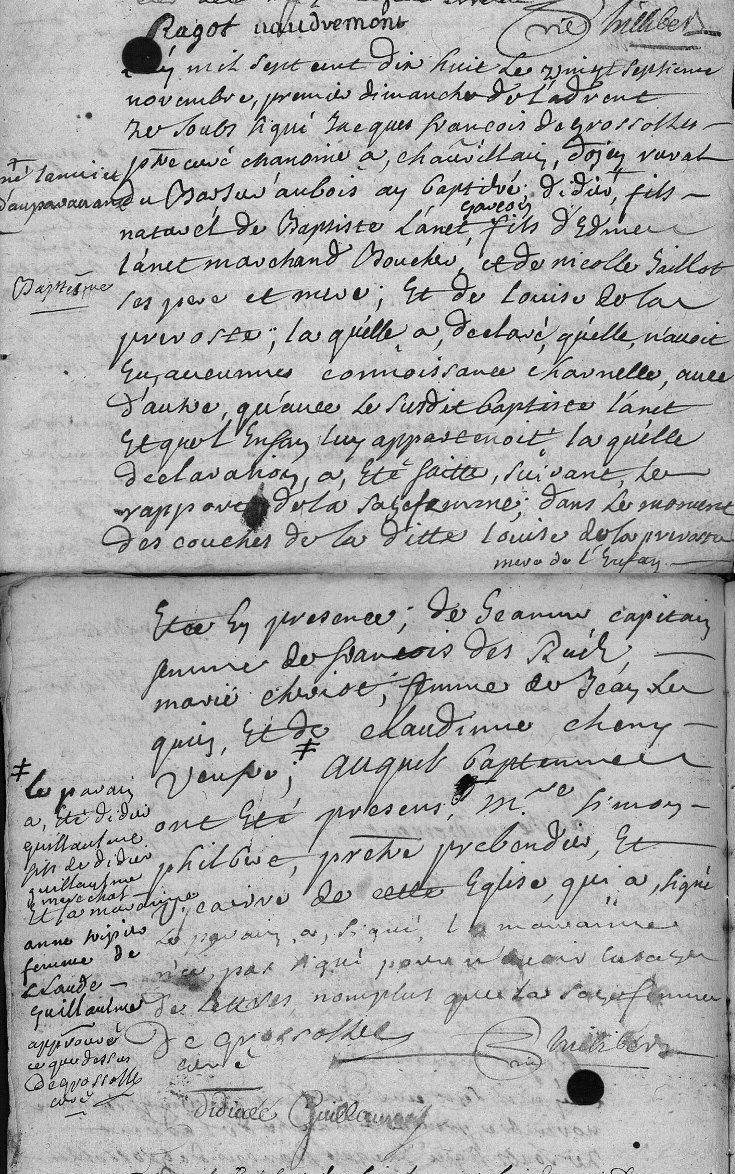 Ragot naudremont
Philbert
mil sept cent dix huit le vingt septieme
novembre, premier dimanche de l'advent
Je soubs signé Jacques françois de grossolles
p̃tre curé chanoine a, chauvillain, doyen rural
du Bassin, ay baptisé; didier, fils
garçon
naturel de Baptiste Lanet, fils d'Edme
Lanet marchand Boucher, et de nicolle Gaillot
ses pere et mere; Et de Louise de la
privoste; la quelle a, declaré, quelle, n'avoit
Eu, aucunnes connoissance charnelle, avec
d'autre, qu'avec le susdit baptiste lanet
Et que l'Enfan luy appartenoit la quelle
declaration, a, Eté faitte, suivant, le
rapport de la sagefemme; dans le moment
des couches de la ditte Louise de la privoste
mere de l'Enfan
né
d'auparavant
Baptesme
Etée En presence; de Jeanne capitain
femme de françois des
marie; femme de Jean le
et de claudinne
Veufve; ‡ auquel baptesme
ont Eté presens; Mre Simon
philbert, prêtre prebendier, Et
Vicaire de cette Eglise, qui a, signé
Le parain, a, signé, la marainne
n'a, pas signé pour n'avoir l'usage
de Lettres, nomplus que la sagefemme
De grossolles
curé
Philbert
Guillaume
‡ le parain
a, Eté didier
guillaulme
fils de didier
guillaulme
marchat
Et la marainne
anne
femme de
Claude
guillaulme
approuvé
ce que dessus
De grossolle
curé